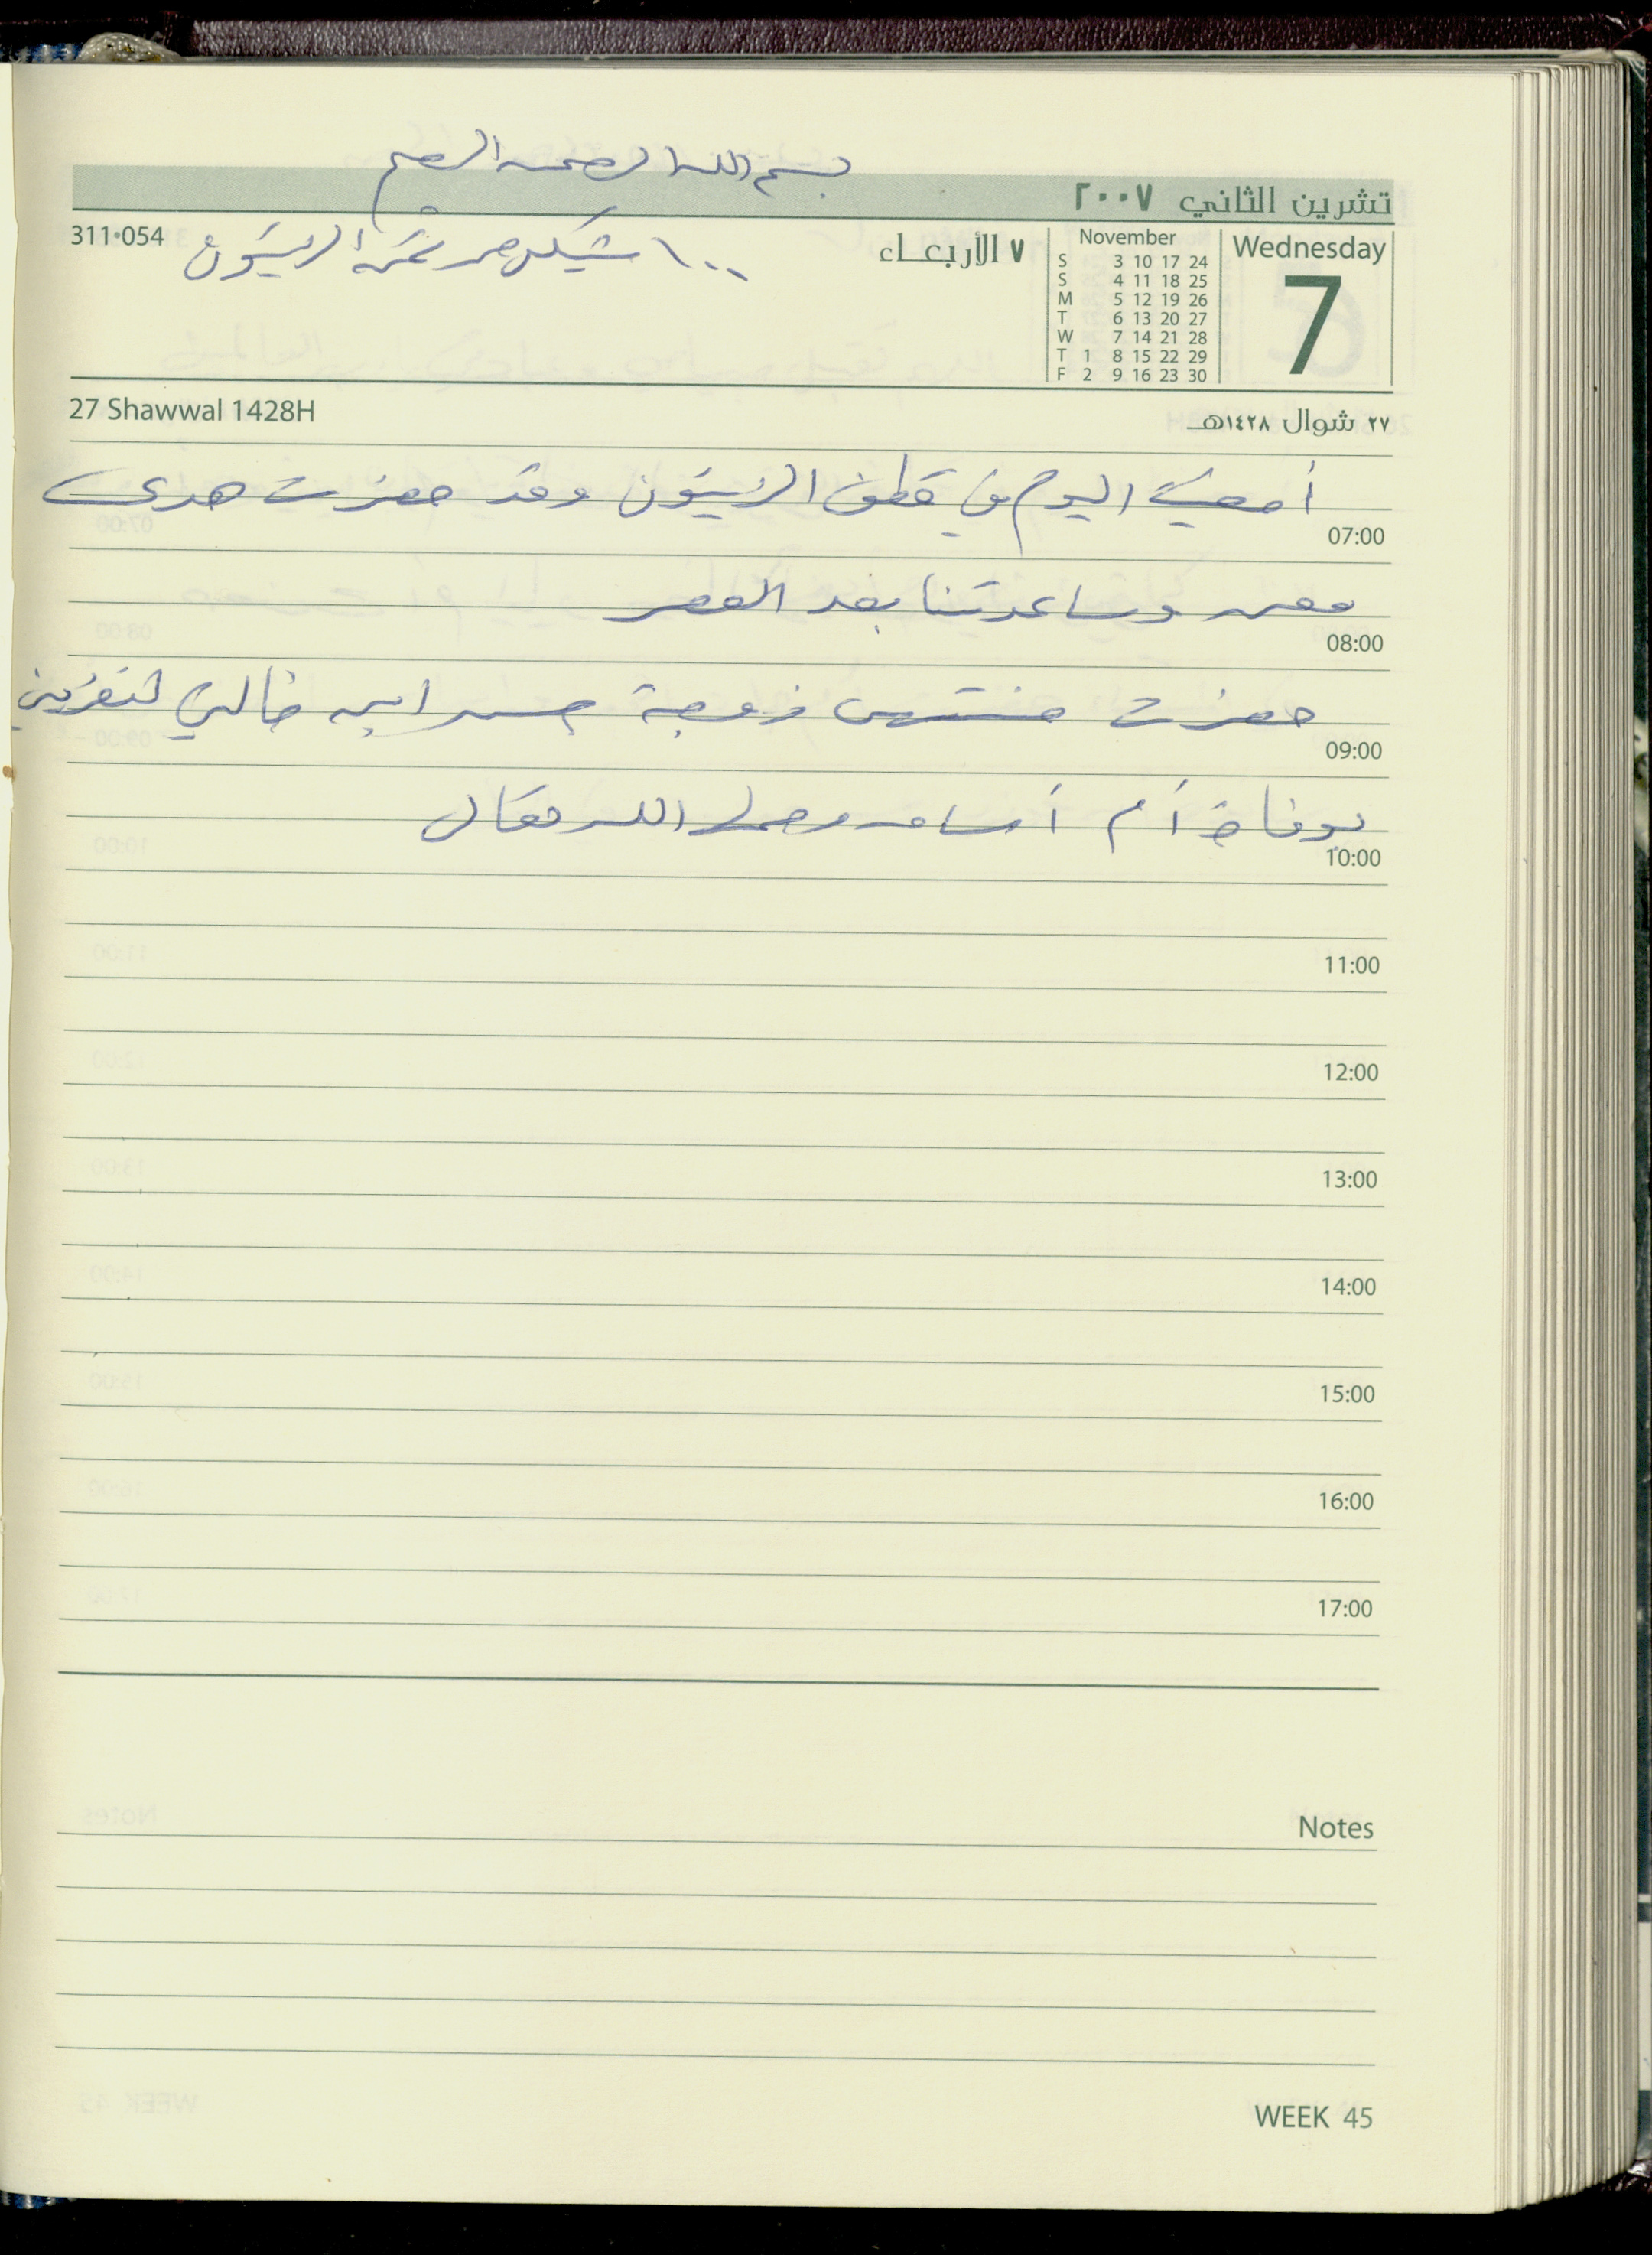 بسم الله الرحمن الرحيم
تشرين الثاني ٢٠٠٧
311-054
١٠٠ شيكل من ثمن الزيتون
٧ الأربعاء
November
S 3 10 17 24
S 4 11 18 25
M 5 12 19 26
T 6 13 20 27
W 7 14 21 28
T 1 8 15 22 29
F 2 9 16 23 30
Wednesday
7
27 Shawwal 1428H
٢٧ شوال ١٤٢٨هـ
أمضيت اليوم في قطف الزيتون وقد حضرت هدى
07:00
وساعدتنا بعد العصر
08:00
حضرت زوجة ابن خالي لتعزيني
09:00
بوفاة أم أسامه رحمها الله تعالى
10:00
11:00
12:00
13:00
14:00
15:00
16:00
17:00
Notes
WEEK 45